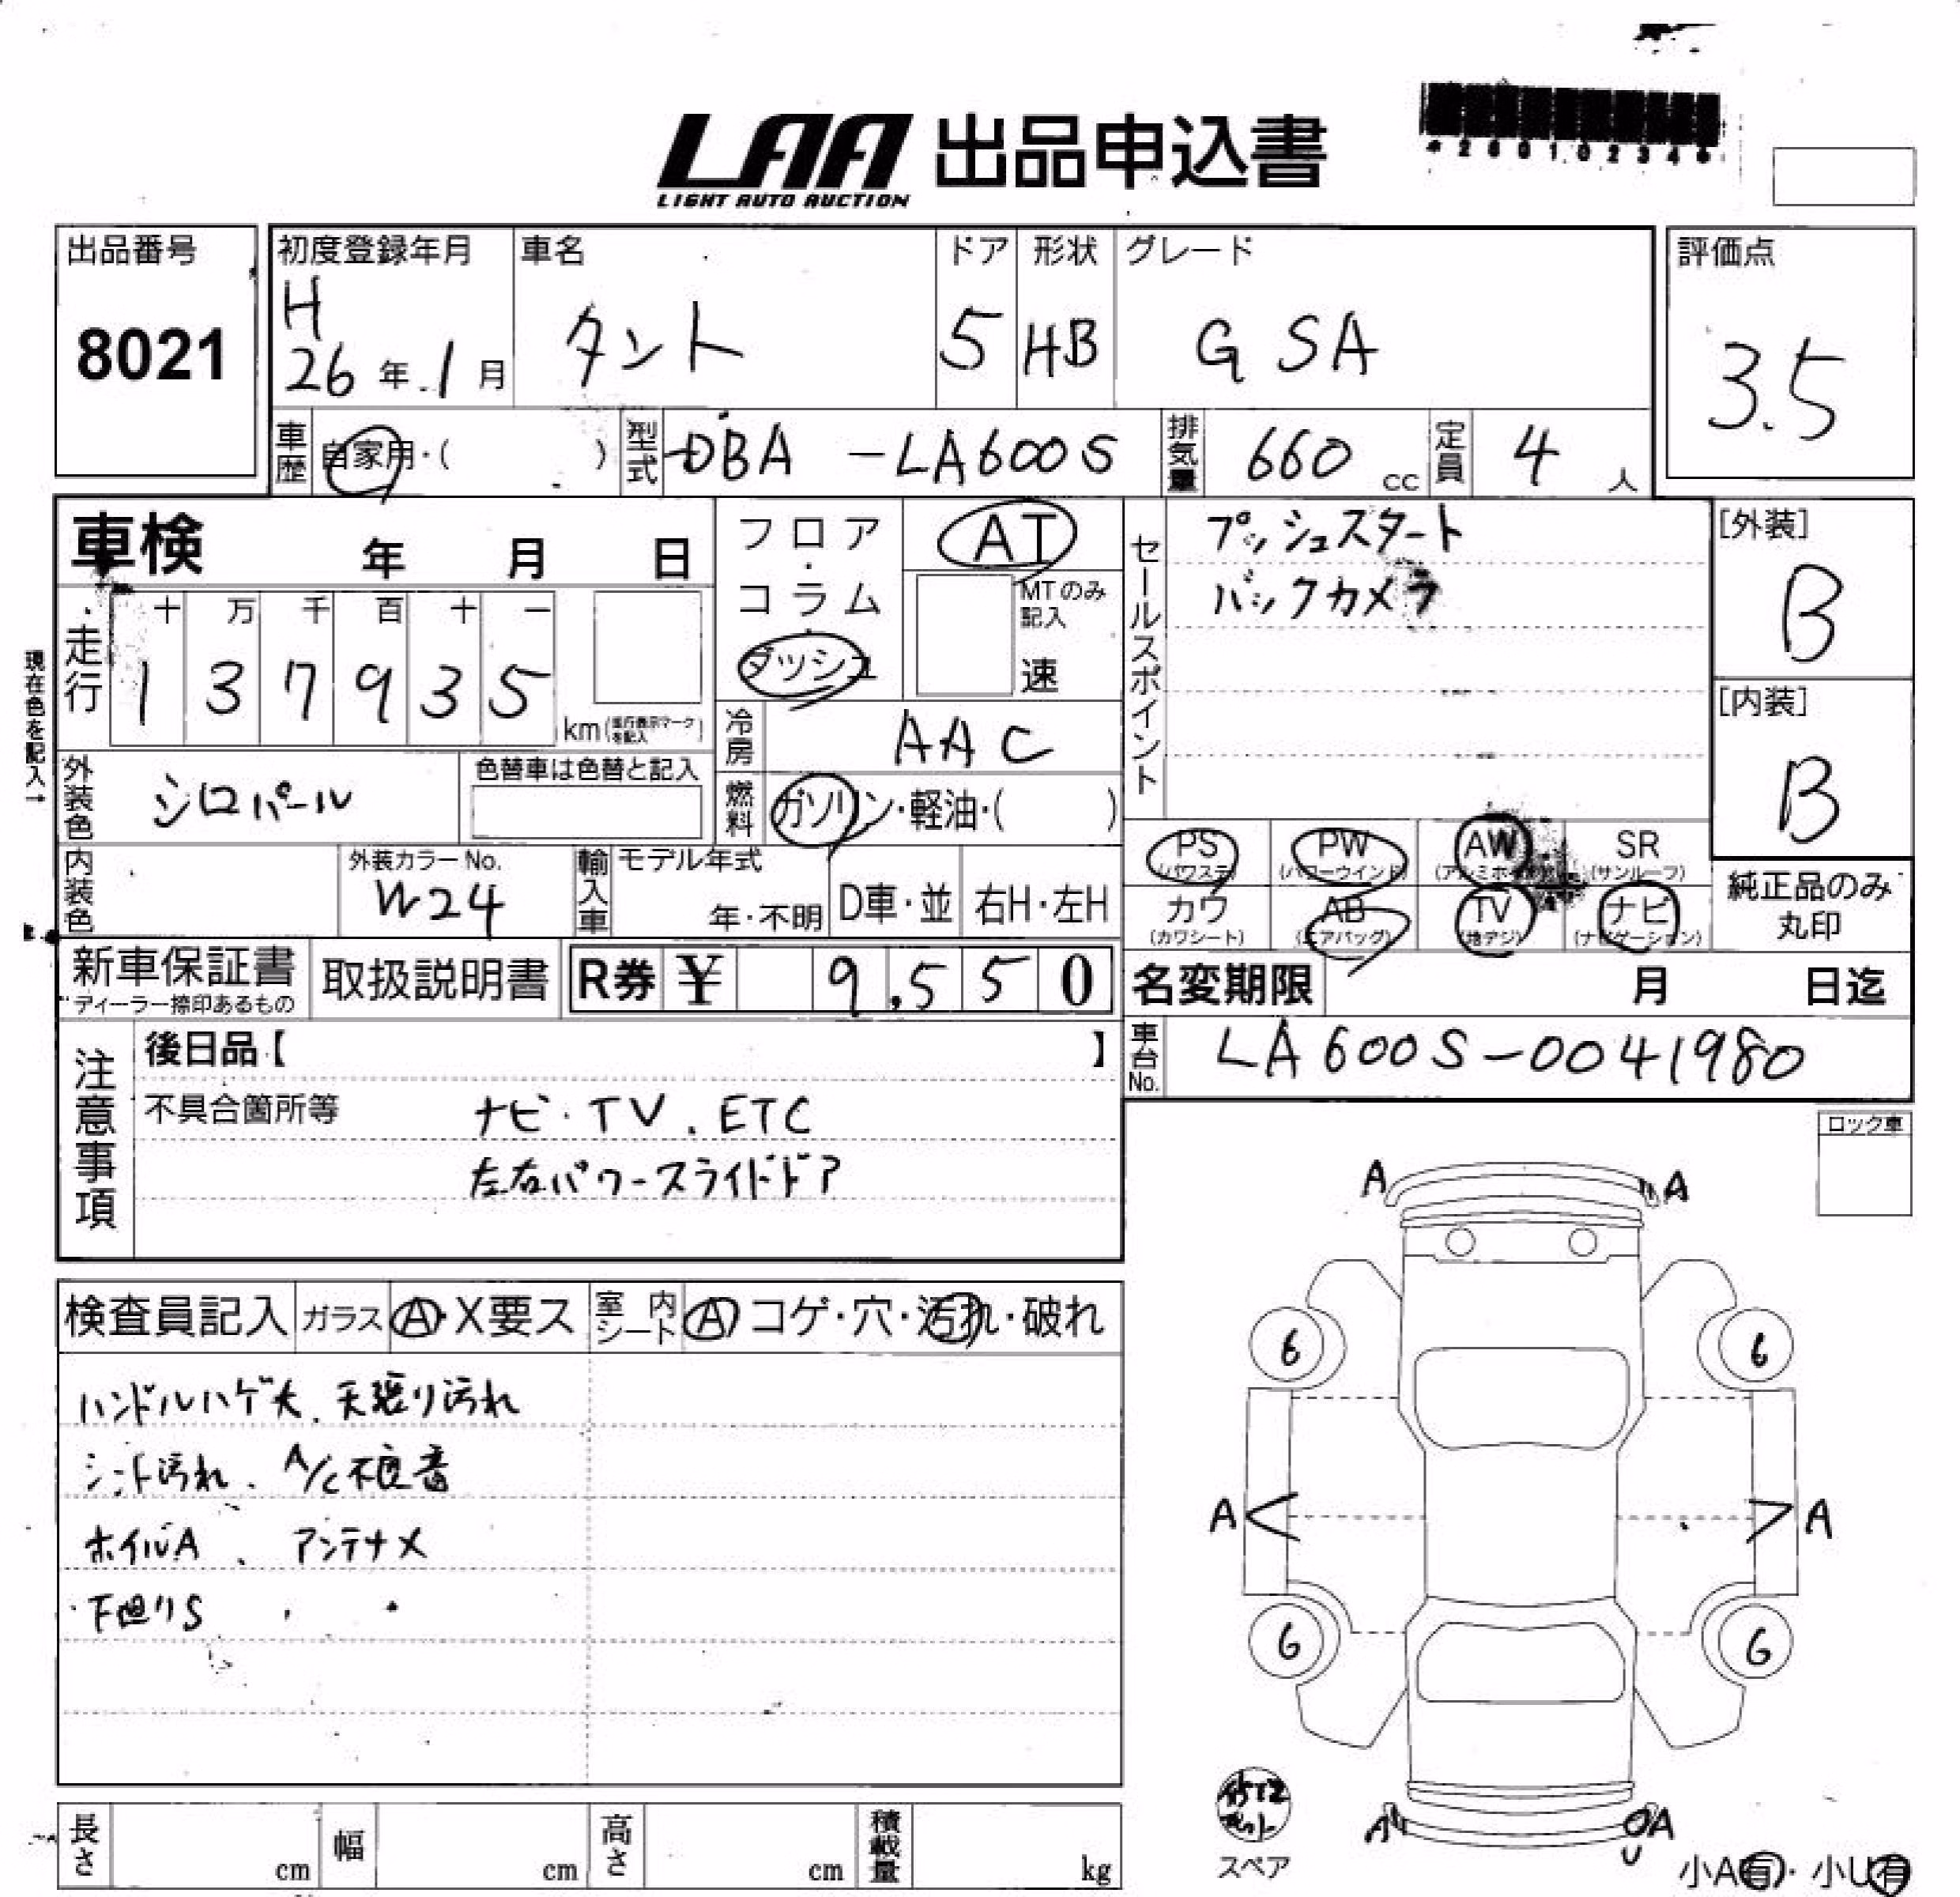 LAA 出品申込書
LIGHT AUTO AUCTION
*28010234*
出品番号
8021
初度登録年月
H
26年1月
車名
タント
ドア
5
形状
HB
グレード
G SA
評価点
3.5
車歴
自家用・( )
型式
DBA -LA600S
排気量
660 cc
定員
4 人
車検 年 月 日
フロア・コラム・ダッシュ
AT
MTのみ記入
速
セールスポイント
プッシュスタート
バックカメラ
[外装]
B
[内装]
B
現在色を記入→
走行
十 万 千 百 十 一
1 3 7 9 3 5
km(走行表示マークを記入)
冷房
AAC
外装色
シロパール
色替車は色替と記入
燃料
ガソリン・軽油・( )
内装色
外装カラーNo.
W24
輸入車
モデル年式
年・不明
D車・並
右H・左H
PS
(パワステ)
PW
(パワーウインド)
AW
(アルミホイール)
SR
(サンルーフ)
カワ
(カワシート)
AB
(エアバッグ)
TV
(地デジ)
ナビ
(ナビゲーション)
純正品のみ
丸印
新車保証書
ディーラー捺印あるもの
取扱説明書
R券 ¥ 9,550
名変期限 月 日迄
車台No.
LA600S-0041980
注意事項
後日品【 】
不具合箇所等
ナビ・TV、ETC
左右パワースライドドア
ロック車
検査員記入
ガラス
A・X要ス
室内シート
A コゲ・穴・汚れ・破れ
ハンドルハゲ大、天張り汚れ
シート汚れ、A/C不良音
ホイルA、アンテナX
下廻りS
A A
6 6
A A
6 6
A UA
スペア
小A有・小U有
長さ cm
幅 cm
高さ cm
積載量 kg